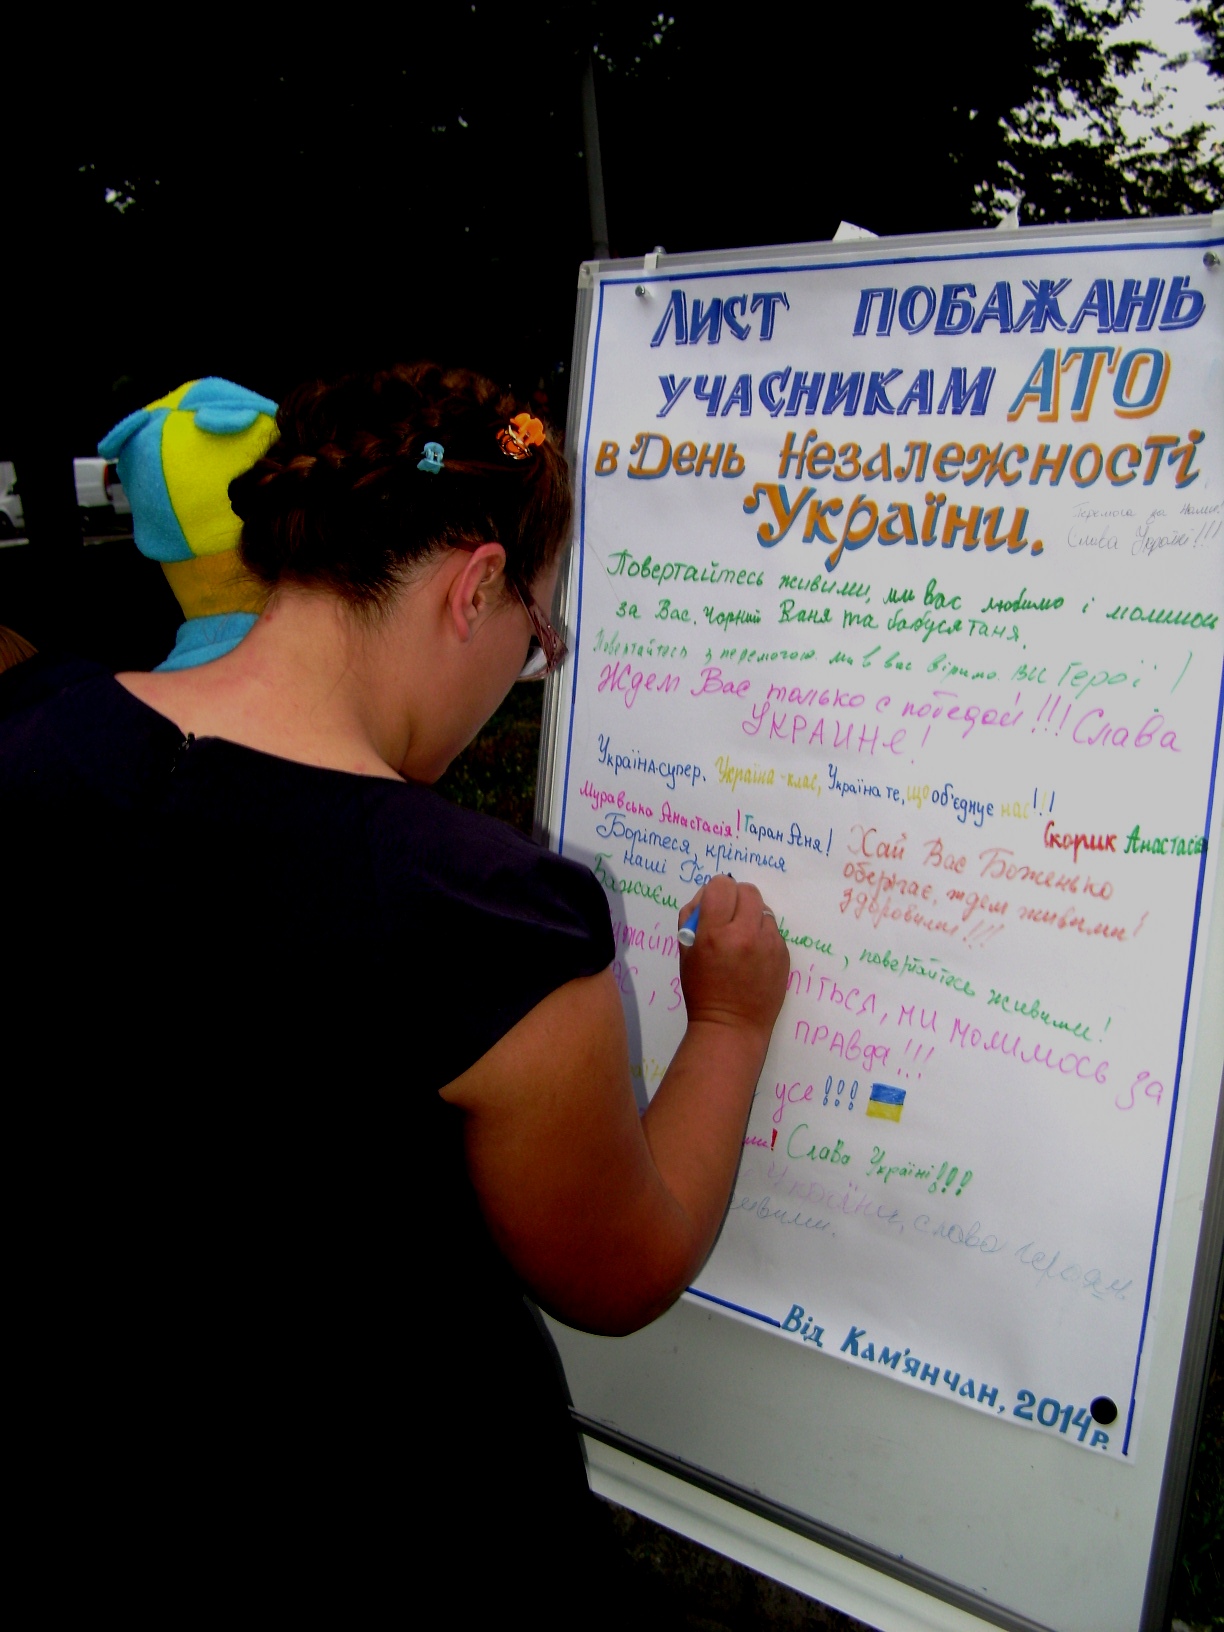 Лист побажань
учасникам АТО
в День Незалежності
України.
Слава Україні!!!
Повертайтесь живими, ми вас любимо і молимось
за Вас. Чорний Ваня та бабуся таня.
Повертайтесь з перемогою. ми в вас віримо. ви Герої!
Ждем Вас только с победой!!! Слава
УКРАИНЕ!
Україна-супер. Україна-клас, Україна те, що об'єднує нас!!!
Муравська Анастасія! Таран Аня! Скорик Анастасія
Борітеся, кріпіться
наші Геро
Хай Вас Боженько
оберігає, ждем живими!
здоровими!!!
Бажаєм повертайтесь живими!
ми молимось за
правда!!!
усе!!!
Слава Україні!!!
України, слава героям.
живими.
Від Кам'янчан, 2014р.